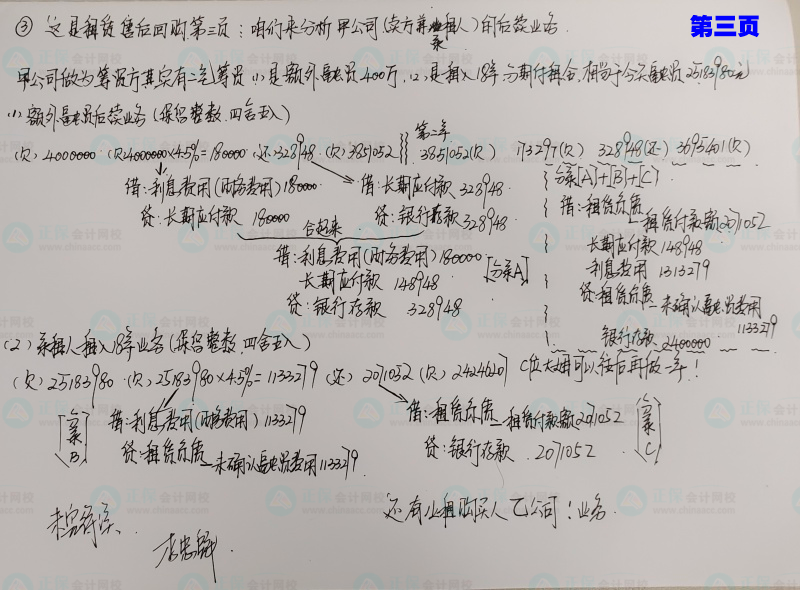 第三页
③ 这是租赁售后回购第三页：咱们来分析甲公司(卖方兼承租人)的后续业务.
甲公司做为筹资方其实有二笔筹资 (1)是额外融资400万, (2)是租入18年,分期付租金,相当于今天融资25183980元
(1)额外融资后续业务(保留整数,四舍五入)
第二年
(欠)4000000 (欠)4000000×4.5%=180000 (还)328948 (欠)3851052 3851052(欠) 173297(欠) 328948(还) 3695401(欠)
借:利息费用(财务费用)180000
贷:长期应付款 180000
借:长期应付款 328948
贷:银行存款 328948
合起来
借:利息费用(财务费用)180000
长期应付款 148948
贷:银行存款 328948
[分录A]
分录[A]+[B]+[C]
借:租赁负债—租赁付款额2071052
长期应付款 148948
利息费用 1313279
贷:租赁负债—未确认融资费用 1133279
银行存款 2400000
(2)承租人租入18年业务(保留整数,四舍五入)
(欠)25183980 (欠)25183980×4.5%=1133279 (还)2071052 (欠)24246207 C位大姐可以往后再做一年!
[分录B]
借:利息费用(财务费用)1133279
贷:租赁负债—未确认融资费用1133279
借:租赁负债—租赁付款额2071052
贷:银行存款 2071052
[分录C]
还有出租购买人乙公司!业务